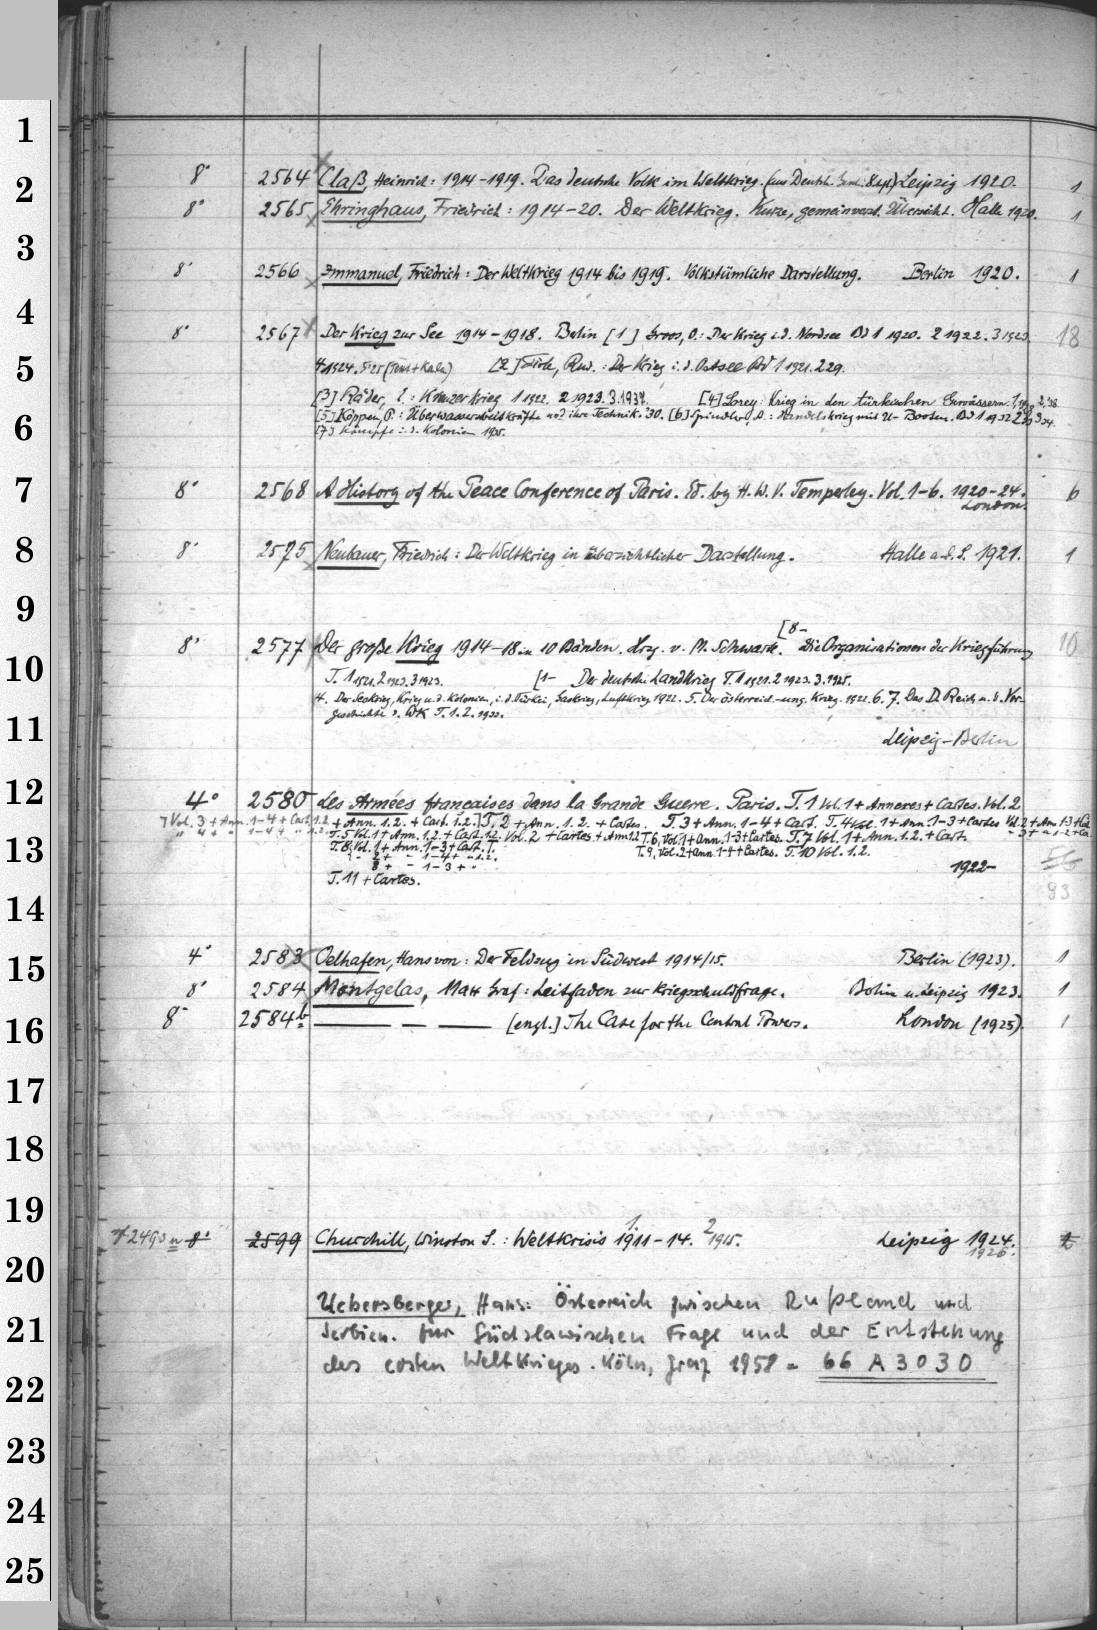 1
2
8° 2564 Claß, Heinrich: 1914-1919. Das deutsche Volk im Weltkrieg. (aus Deutsch. Leipzig 1920. 1
8° 2565 Ehringhaus, Friedrich: 1914-20. Der Weltkrieg. Kurze, gemeinverst. Übersicht. Halle 1920. 1
3
8° 2566 Immanuel, Friedrich: Der Weltkrieg 1914 bis 1919. Volkstümliche Darstellung. Berlin 1920. 1
4
8° 2567 Der Krieg zur See 1914-1918. Berlin [1] Groos, O.: Der Krieg i.d. Nordsee Bd 1 1920. 2 1922. 3 1923. 18
5
4 1924. 5 '25 (Text + Karte) [2] Firle, Rud.: Der Krieg i.d. Ostsee Bd 1 1921. 2 29.
[3] Räder, E.: Kreuzerkrieg 1 1922. 2 1923. 3. 1937. [4] Lorey: Krieg in den türkischen Gewässern 1, 2, '38
6
[5] Köppen, P.: Überwasserstreitkräfte und ihre Technik. '30. [6] Spindler, A.: Handelskrieg mit U-Booten. Bd 1 1932 2 33 3 34.
[7] Kämpfe i. d. Kolonien 1935.
7
8° 2568 A History of the Peace Conference of Paris. Ed. by H. W. V. Temperley. Vol. 1-6. 1920-24. 6
London.
8
8° 2575 Neubauer, Friedrich: Der Weltkrieg in übersichtlicher Darstellung. Halle a.d.S. 1921. 1
9
[8-
8° 2577 Der große Krieg 1914-18 in 10 Bänden. Hrsg. v. M. Schwarte. Die Organisationen der Kriegführung 10
10
T. 1 1921. 2 1923. 3 1923. [1- Der deutsche Landkrieg T. 1 1921. 2 1923. 3. 1925.
4. Der Seekrieg, Krieg u. d. Kolonien, i. d. Türkei, Gaskrieg, Luftkrieg 1922. 5. Der österreich.-ung. Krieg. 1922. 6. 7. Das D. Reich u. d. Vor-
geschichte d. WK T. 1. 2. 1933.
11
Leipzig-Berlin
12
4° 2580 Les Armées francaises dans la Grande Guerre. Paris. T. 1 Vol. 1 + Annexes + Cartes. Vol. 2
7 Vol. 3 + Ann. 1-4 + Cart. 1.2. + Ann. 1.2. + Cart. 1.2.] T. 2 + Ann. 1. 2. + Cartes. T. 3 + Ann. 1-4 + Cart. T. 4 Vol. 1 + Ann. 1-3 + Cartes Vol. 2 + Ann. 1-3
" 4 + " 1-4 + " 1.2. T. 5 Vol. 1 + Ann. 1.2. + Cart. 1.2. Vol. 2 + Cartes + Ann. 1.2 T. 6, Vol. 1 + Ann. 1-3 + Cartes. T. 7 Vol. 1 + Ann. 1. 2. + Cart.
13
T. 8, Vol. 1 + Ann. 1-3 + Cart. T. T. 9, Vol. 2 + Ann. 1-4 + Cartes. T. 10 Vol. 1. 2.
" 2 + " 1-4 + " 1.2.
3 + " 1-3 + " 1922- 56
T. 11 + Cartes. 93
14
15
4° 2583 Oelhafen, Hans von: Der Feldzug in Südwest 1914/15. Berlin (1923). 1
8° 2584 Montgelas, Max Graf: Leitfaden zur Kriegsschuldfrage. Berlin u. Leipzig 1923. 1
16
8° 2584b — — — [engl.] The Case for the Central Powers. London (1925). 1
17
18
19
1. 2
2493 8° 2599 Churchill, Winston S.: Weltkrisis 1911-14. 1915. Leipzig 1924. 2
1926.
20
Uebersberger, Hans: Österreich zwischen Rußland und
21
Serbien. Zur Südslawischen Frage und der Entstehung
des ersten Weltkrieges. Köln, Graz 1958 = 66 A 3030
22
23
24
25